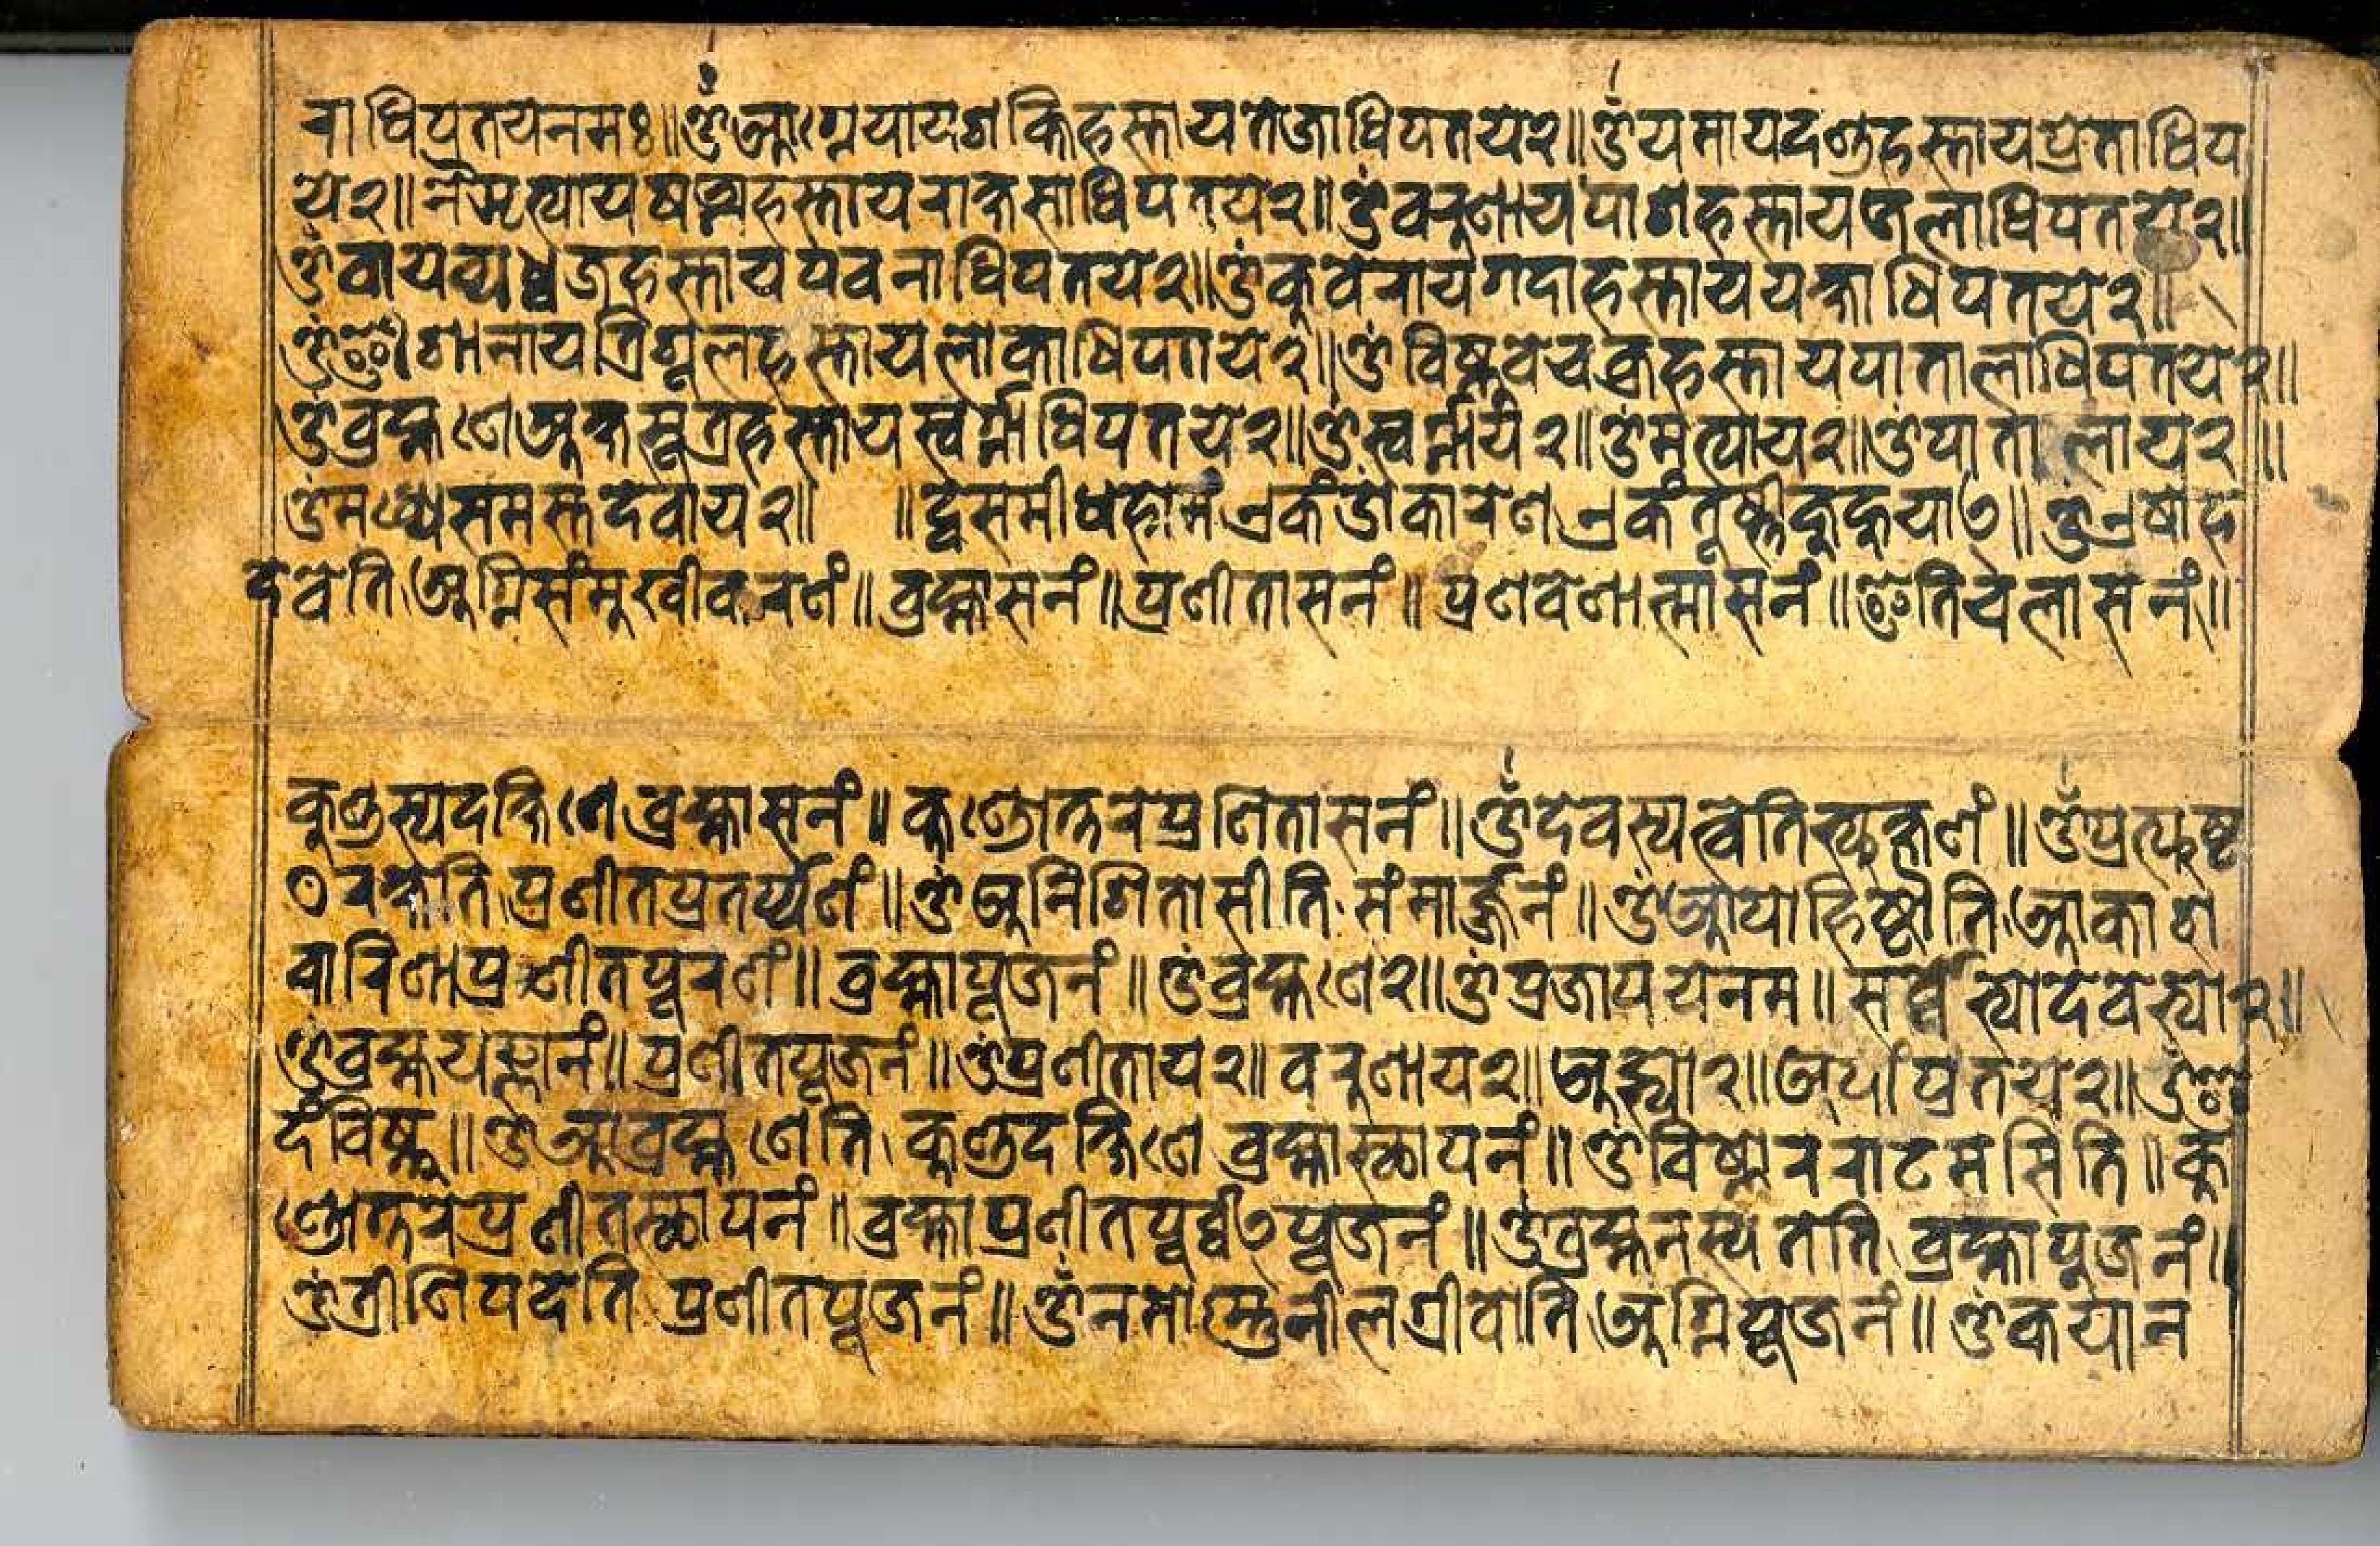 राधिपतयेनमः॥ॐआग्नेयायशक्तिहस्तायतेजाधिपतये२॥ॐयमायदण्डहस्तायप्रेताधिप
ये२॥नैऋत्यायषड्गहस्तायराक्षसाधिपतये२॥ॐवरुणायपाशहस्तायजलाधिपतये२॥
ॐवायव्यध्वजहस्तायपवनाधिपतये२॥ॐकुवेरायगदाहस्ताययक्षाधिपतये२॥
ॐईशानायत्रिशूलहस्तायलोकाधिपतये२॥ॐविष्णवेचक्रहस्तायपातालाधिपतये२॥
ॐब्रह्मणेअक्षसूत्रहस्तायस्वर्गाधिपतये२॥ॐस्वर्गाय२॥ॐमृत्याय२॥ॐपातालाय२॥
ॐमध्येसमस्तदेवाय२॥ ॥द्वेसमीधहोमं एकंॐकारेण एकंतूष्णी ॥ॐएषोह
देवेति अग्निसंमुखीकरणं॥ब्रह्मासनं॥प्रणीतासनं॥प्रणवेणात्मासनं॥इतिचलासनं॥
कुण्डस्यदक्षिणेब्रह्मासनं॥कुण्डोत्तरेप्रणितासनं॥ॐदेवस्यत्वेतिरभ्युक्षणं॥ॐप्रत्युष्ट
ꣳरक्षेति प्रणीतप्रतर्प्पणं॥ॐअनिशितोसीति संमार्ज्जनं॥ॐआपोहिष्ठेति आकाश
वारिणाप्रणीतपूरणं॥ब्रह्मापूजनं॥ॐब्रह्मणे२॥ॐप्रजापयेनम॥सर्व्वेभ्योदेवेभ्यो२॥
ॐब्रह्मयज्ञानं॥प्रणीतपूजनं॥ॐप्रणीताय२॥वरुणाय२॥अद्भ्यो२॥अपांप्रतये२॥ॐइ
दंविष्णु॥ॐआब्रह्मणेति कुण्डदक्षिणेब्रह्मास्थापनं॥ॐविष्णोरराटमसिति॥कु
ण्डोत्तरेप्रणीतस्थापनं॥ब्रह्माप्रणीतपूर्व्ववत्पूजनं॥ॐब्रह्मनस्पतेति ब्रह्मापूजनं॥
ॐत्रीणिपदेति प्रणीतपूजनं॥ॐनमोस्तुनीलग्रीवोति अग्निपूजनं॥ॐकयान